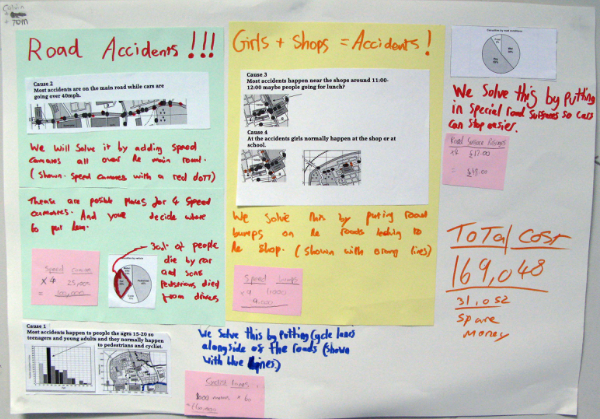 Tom
Road Accidents!!!
Cause 2
Most accidents are on the main road while cars are
going over 40mph.
We will solve it by adding speed
cameras all over the main road.
(shown speed cameras with a red dot)
These are posible places for 4 speed
cameras. And your decide where
to put them.
Speed cameras
x 4 25,000
= 100,000
30% of people
die by car
and some
pedestrians died
from drivers
Girls + Shops = Accidents!
Cause 3
Most accidents happen near the shops around 11:00-
12:00 maybe people going for lunch?
Cause 4
At the accidents girls normally happen at the shop or at
school.
We solve this by puting road
bumps on the roads leading to
the shop. (shown with orang lines)
Speed bumps
x 4 1,000
4,000
We solve this by putting
in special road surfaces so cars
can stop easier.
Road Surface
TOTAL COST
169,048
31,052
Spare
money
Cause 1
Most accidents happen to people the ages 15-20 so
teenagers and young adults and they normally happen
to pedestrians and cyclist.
We Solve this by putting Cycle lanes
alongside of the roads (shown
with blue lines)